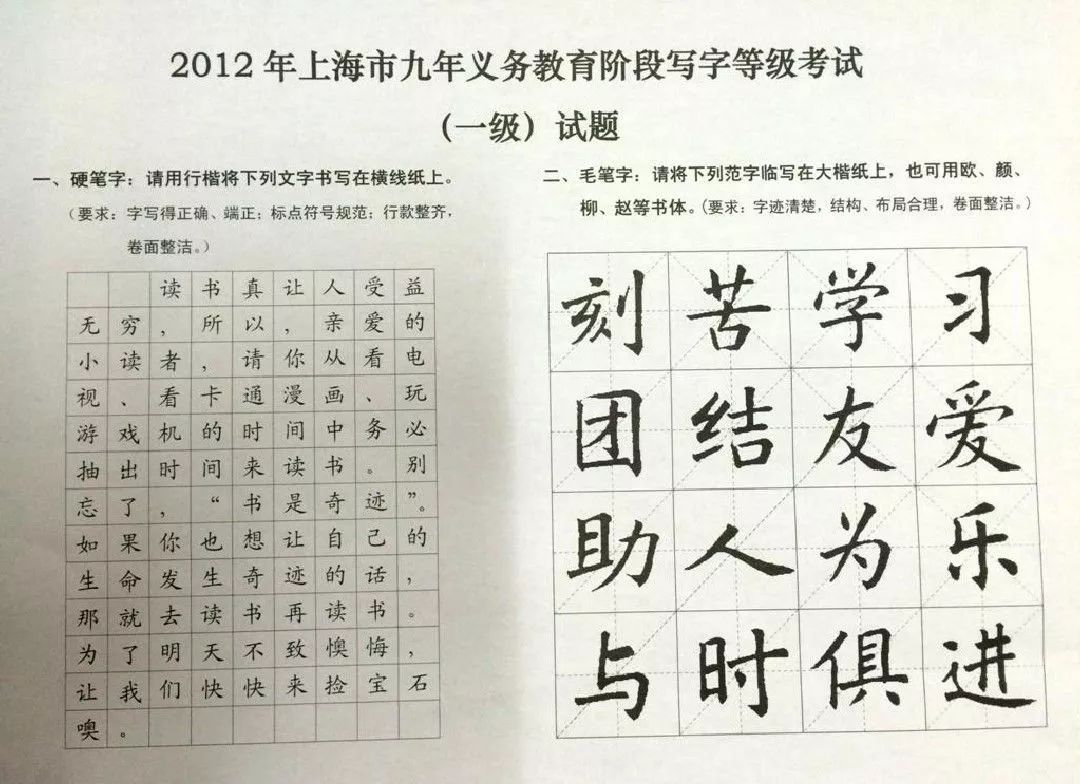 2012年上海市九年义务教育阶段写字等级考试
（一级）试题
一、硬笔字：请用行楷将下列文字书写在横线纸上。
（要求：字写得正确、端正；标点符号规范；行款整齐，
卷面整洁。）
读书真让人受益
无穷，所以，亲爱的
小读者，请你从看电
视、看卡通漫画、玩
游戏机的时间中务必
抽出时间来读书。别
忘了，“书是奇迹”。
如果你也想让自己的
生命发生奇迹的话，
那就去读书再读书。
为了明天不致懊悔，
让我们快快来捡宝石
噢。
二、毛笔字：请将下列范字临写在大楷纸上，也可用欧、颜、
柳、赵等书体。（要求：字迹清楚，结构、布局合理，卷面整洁。）
刻苦学习
团结友爱
助人为乐
与时俱进